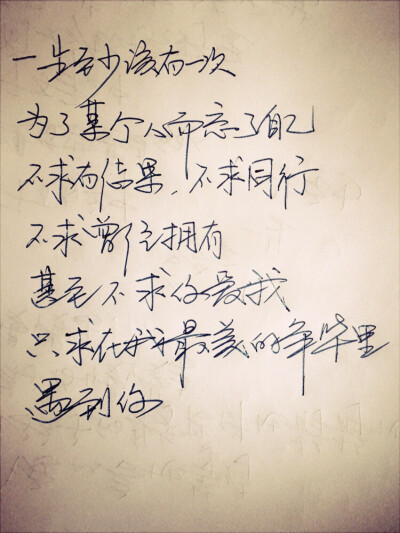 一生至少该有一次
为了某个人而忘了自己
不求有结果,不求同行
不求曾经拥有
甚至不求你爱我
只求在我最美的年华里
遇到你